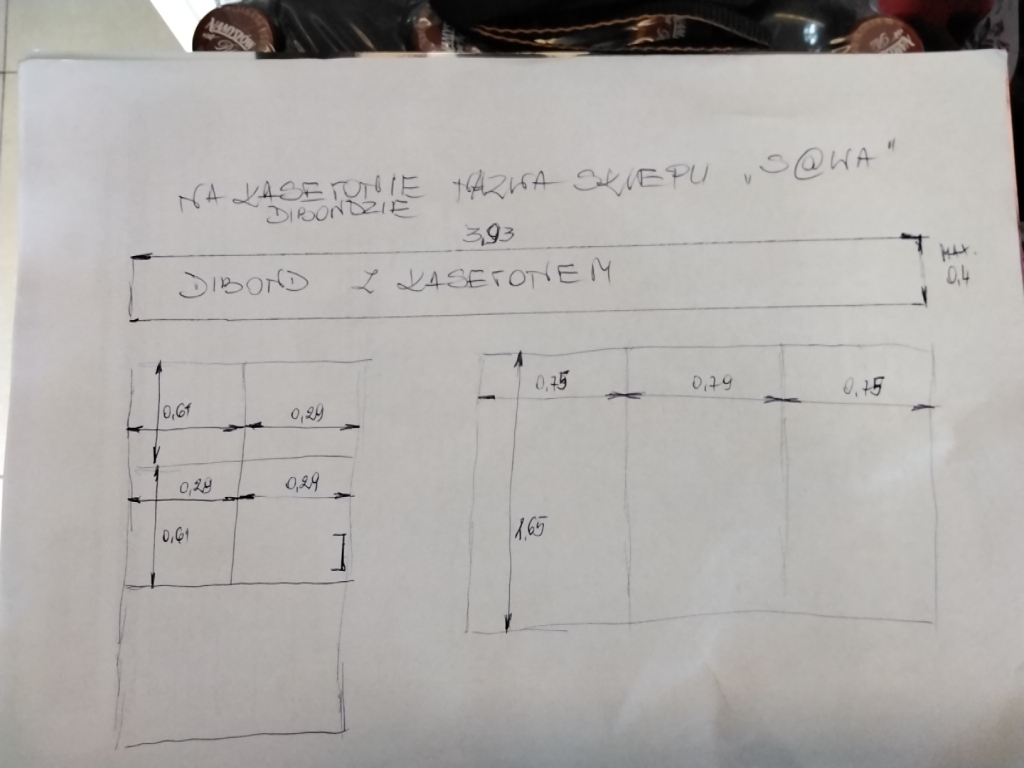 NA KASETONIE NAZWA SKLEPU „S@WA"
DIBONDZIE
3,93
DIBOND Z KASETONEM
MAX.
0,4
0,61 0,29
0,29 0,29
0,61
0,75 0,79 0,75
1,65